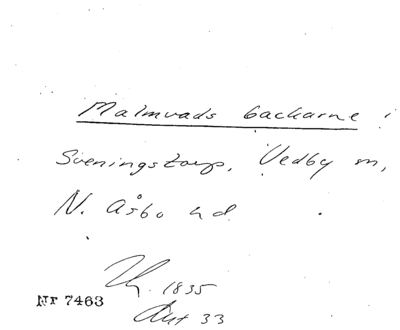 Malmvads backarne i
Sveningstorp, Vedby m,
N. Åsbo hd
1835
Akt 33
Nr 7463